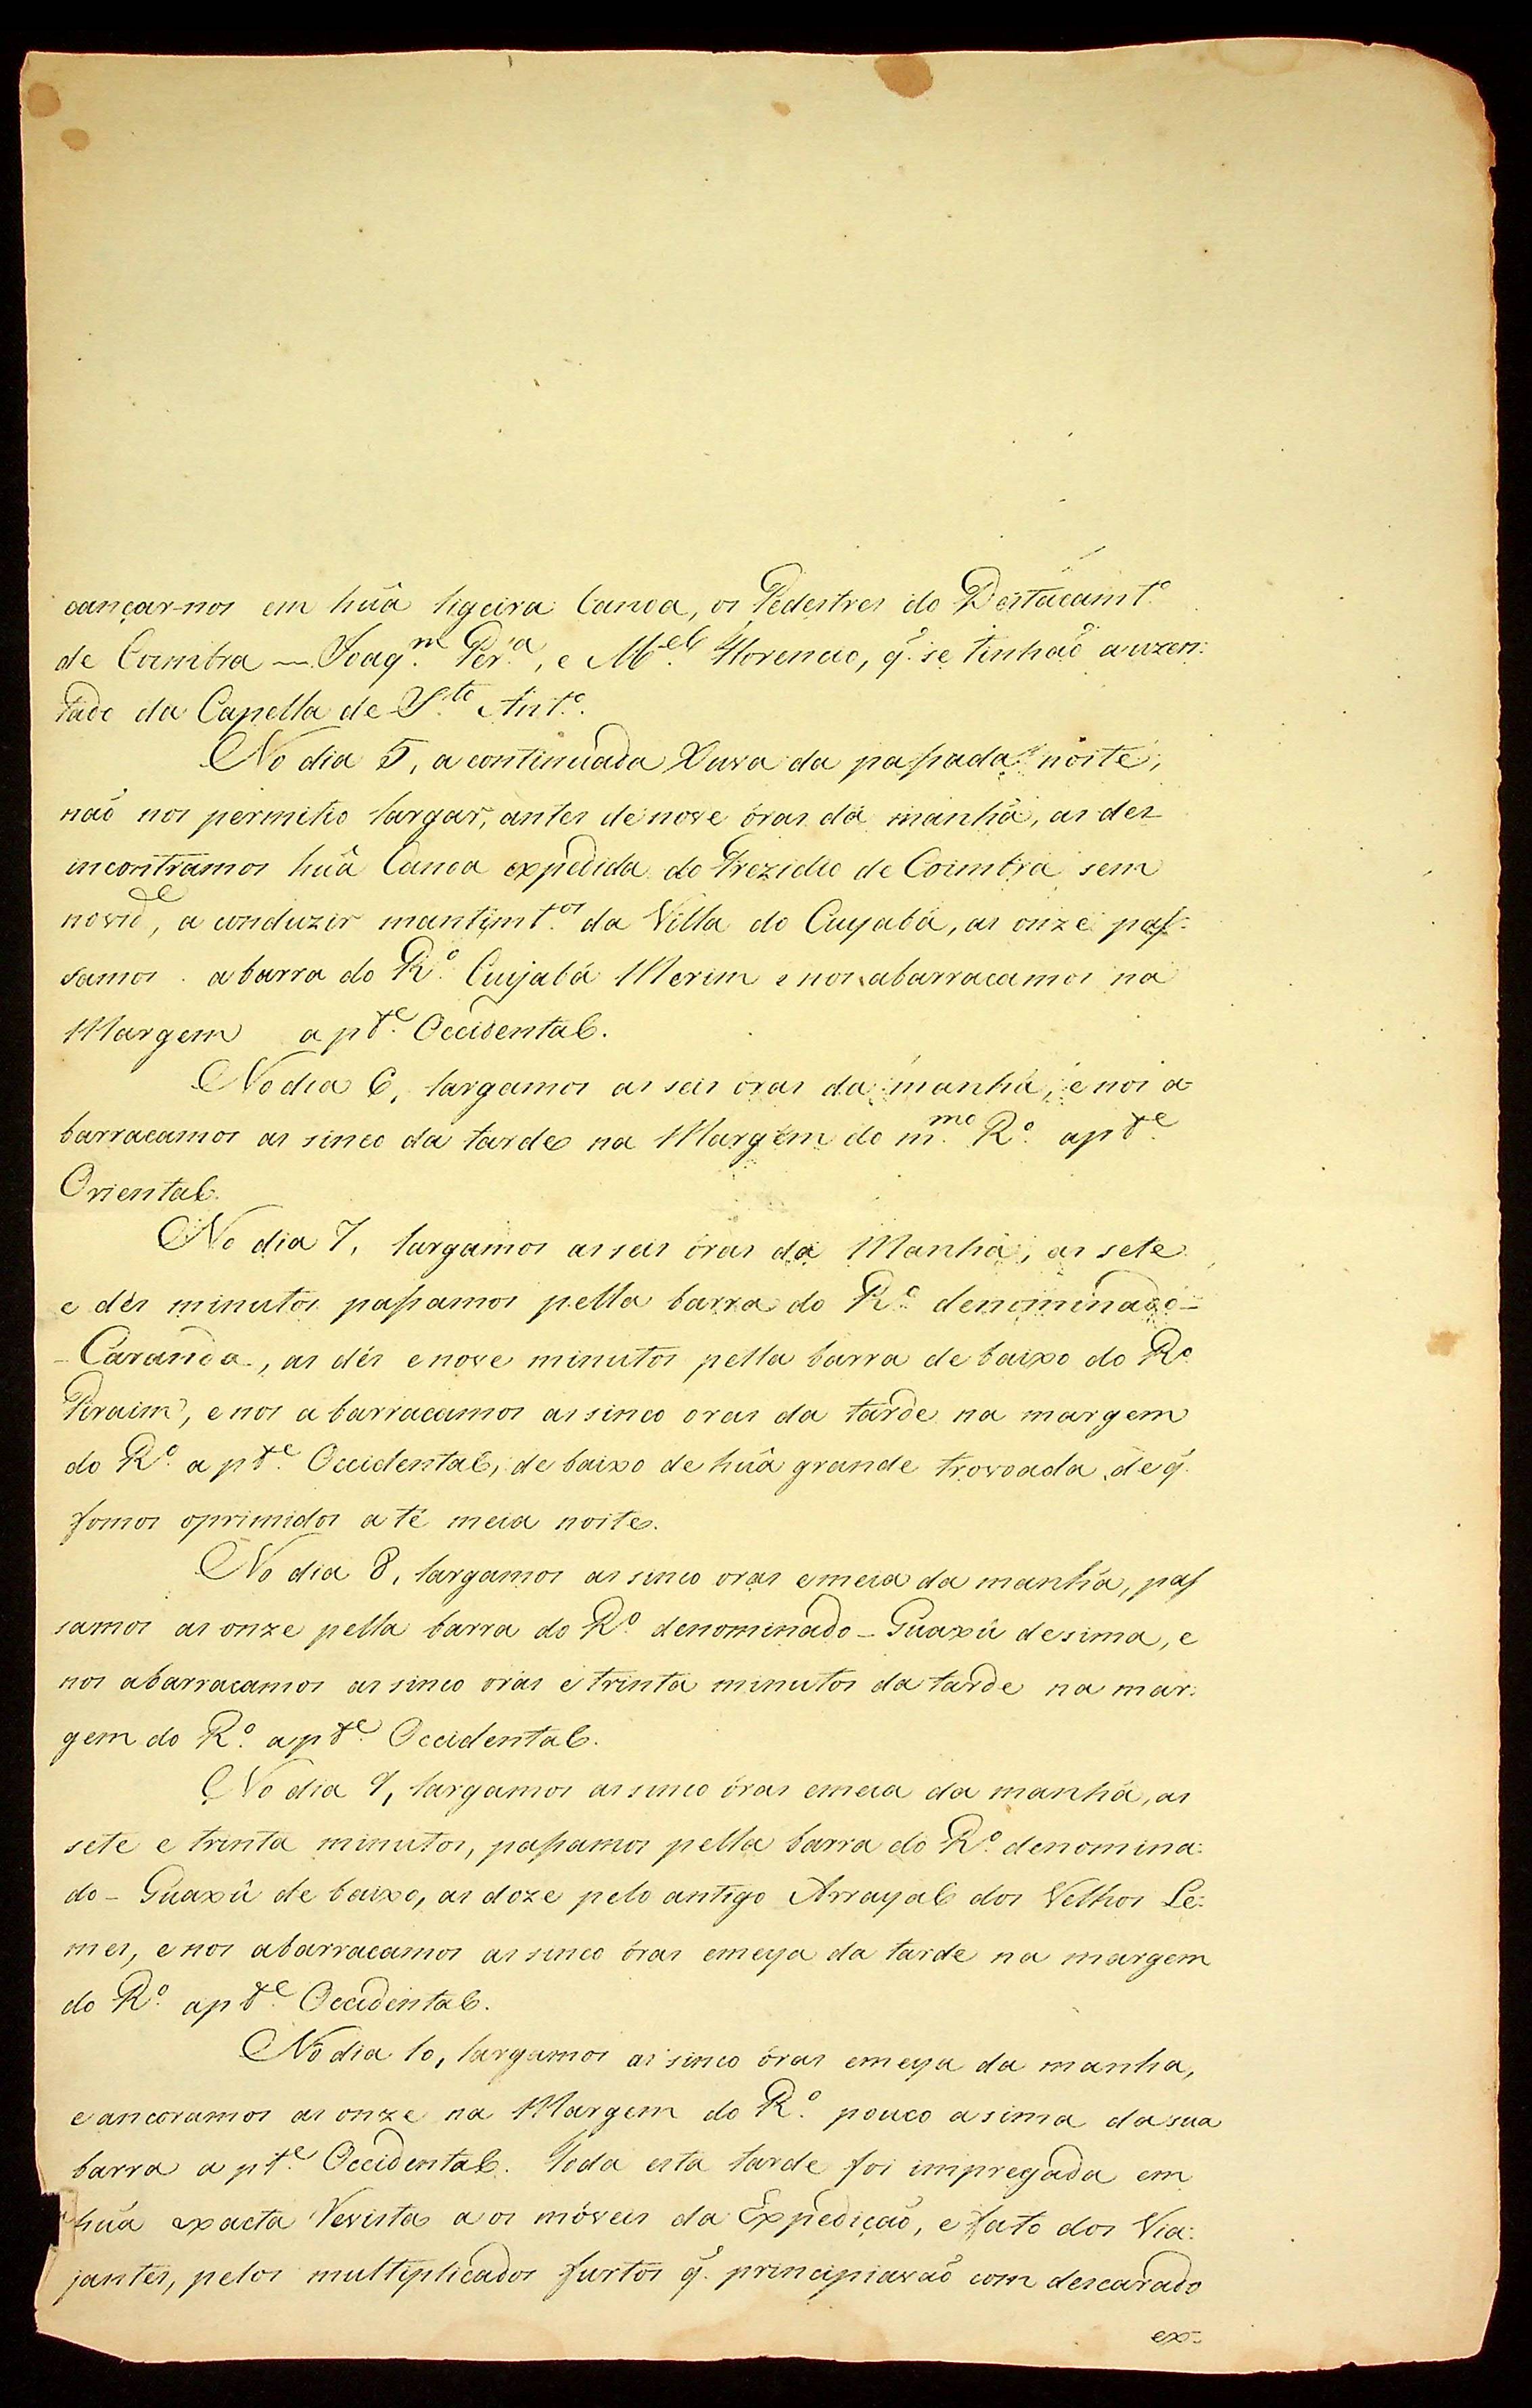 cançar-nos em hũa ligeira Canoa, os Pedestres do Destacamt.º
de Coimbra — Joaq.m Per.a, e M.el Florencio, q̃ se tinhaõ auzen:
tado da Capella de S.to Ant.º
No dia 5, a continuada Xuva da passada noite,
naõ nos permitio largar, antes de nove óras da manhã, as dez
incontramos hũa Canoa expedida do Prezidio de Coimbra sem
novid.e, a conduzir mantimt.os da Villa do Cuyabá, as onze pas:
samos a barra do R.º Cuyabá Merim e nos abarracamos na
Margem a pt.e Occidental.
No dia 6, largamos as seis óras da manhã, e nos a
barracamos as sinco da tarde na Margem do m.mo R.º a pt.e
Oriental.
No dia 7, largamos as seis óras da Manhã, as sete
e dés minutos passamos pella barra do R.º denominado -
- Caranda, as dés e nove minutos pella barra de baixo do R.º
Piraim, e nos abarracamos as sinco oras da tarde na margem
do R.º a pt.e Occidental, de baixo de hũa grande trovoada, de q̃
fomos oprimidos a té meia noite.
No dia 8, largamos as sinco oras e meia da manhã, pas
samos as onze pella barra do R.º denominado - Guaxû de sima, e
nos abarracamos as sinco oras e trinta minutos da tarde na mar:
gem do R.º a pt.e Occidental.
No dia 9, largamos as sinco óras e meia da manhã, as
sete e trinta minutos, passamos pella barra do R.º denomina:
do - Guaxû de baixo, as doze pelo antigo Arrayal dos Velhos Le:
mes, e nos abarracamos as sinco óras e meya da tarde na margem
do R.º a pt.e Occidental.
No dia 10, largamos as sinco óras e meya da manha,
e ancoramos as onze na Margem do R.º pouco a sima da sua
barra a pt.e Occidental. Toda esta tarde foi impregada em
hũa exacta Revista a os móveis da Expediçaõ, e fato dos Via:
jantes, pelos multiplicados furtos q̃ principiavaõ com descarado
ex: